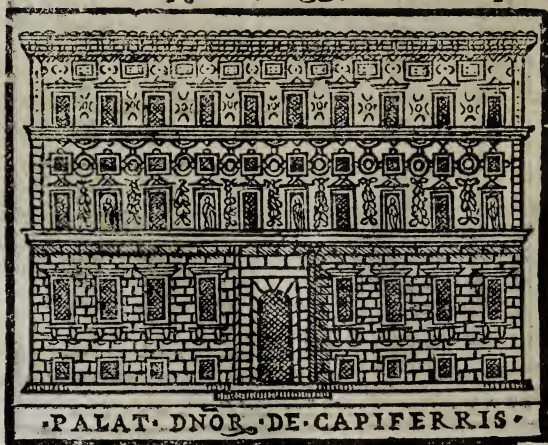 ·PALAT· DNO᷒R· DE·CAPIFERRIS·